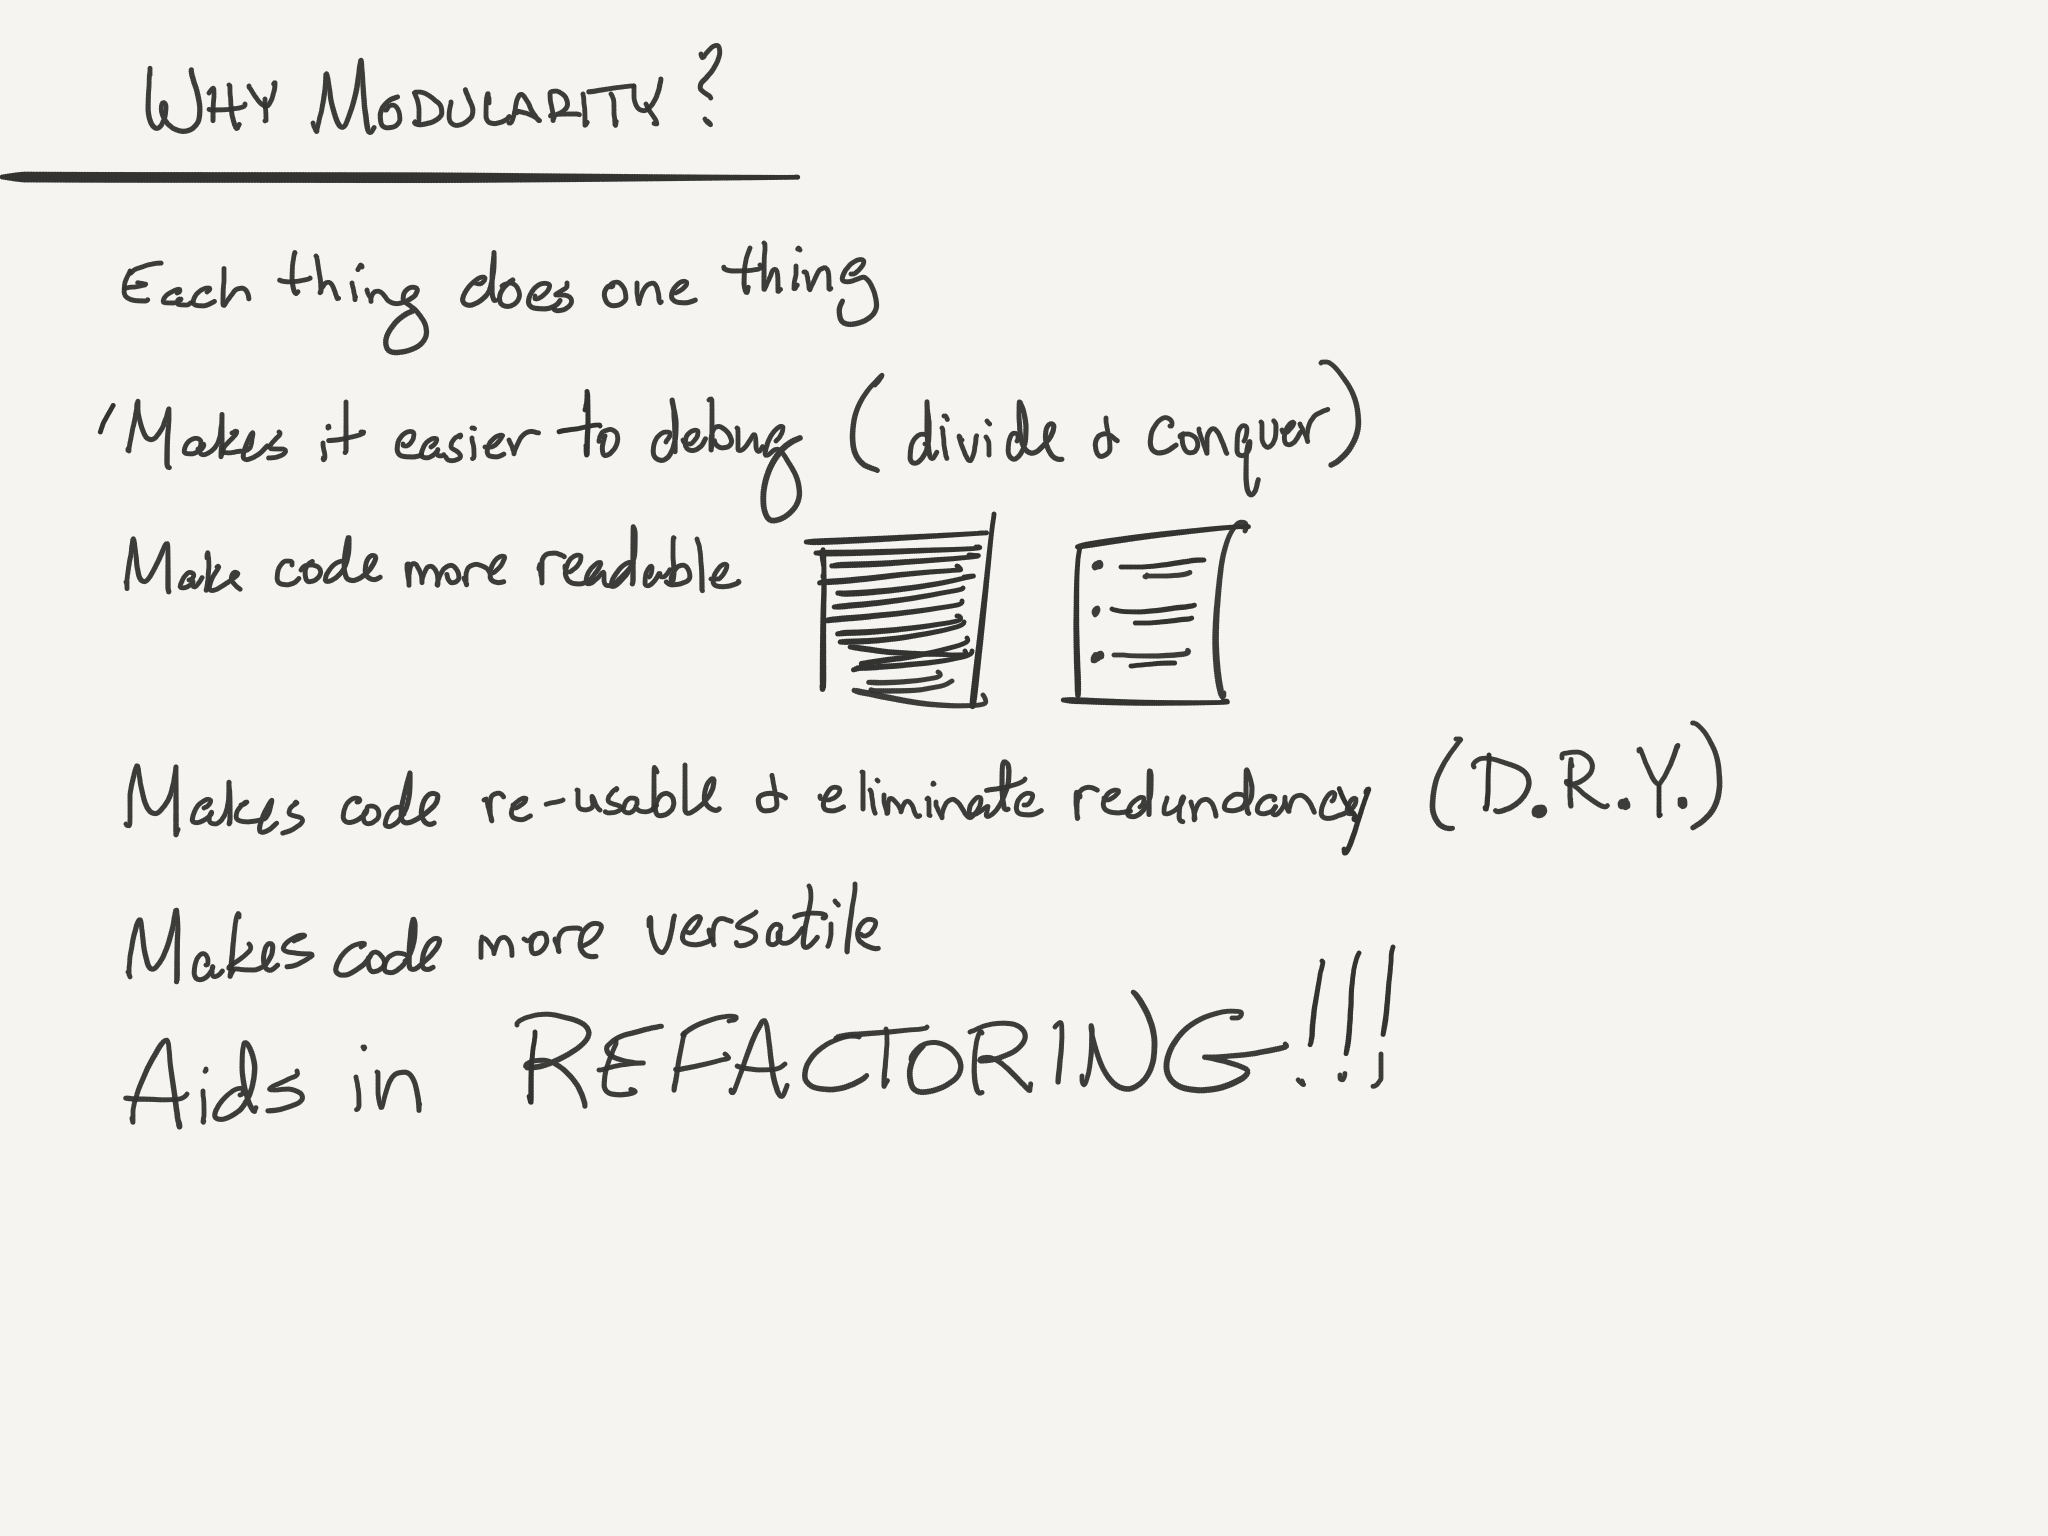 WHY MODULARITY?
Each thing does one thing
Makes it easier to debug (divide & conquer)
Make code more readable
Makes code re-usable & eliminate redundancy (D.R.Y.)
Makes code more versatile
Aids in REFACTORING!!!